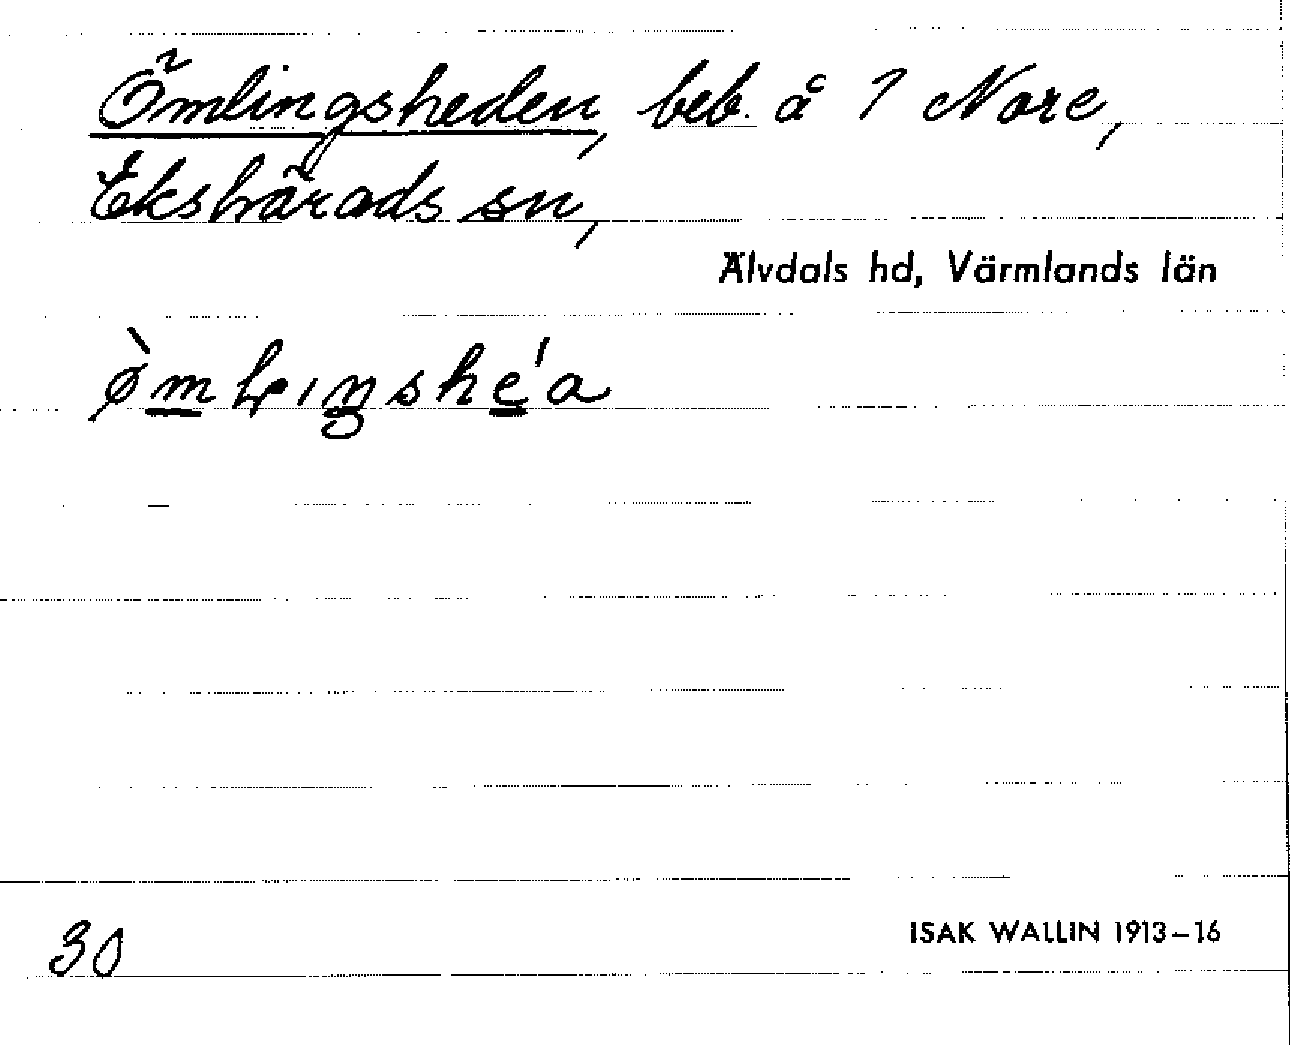 Ömlingsheden, beb. å 1 Nore,
Ekshärads sn,
Älvdals hd, Värmlands län
30
ISAK WALLIN 1913–16